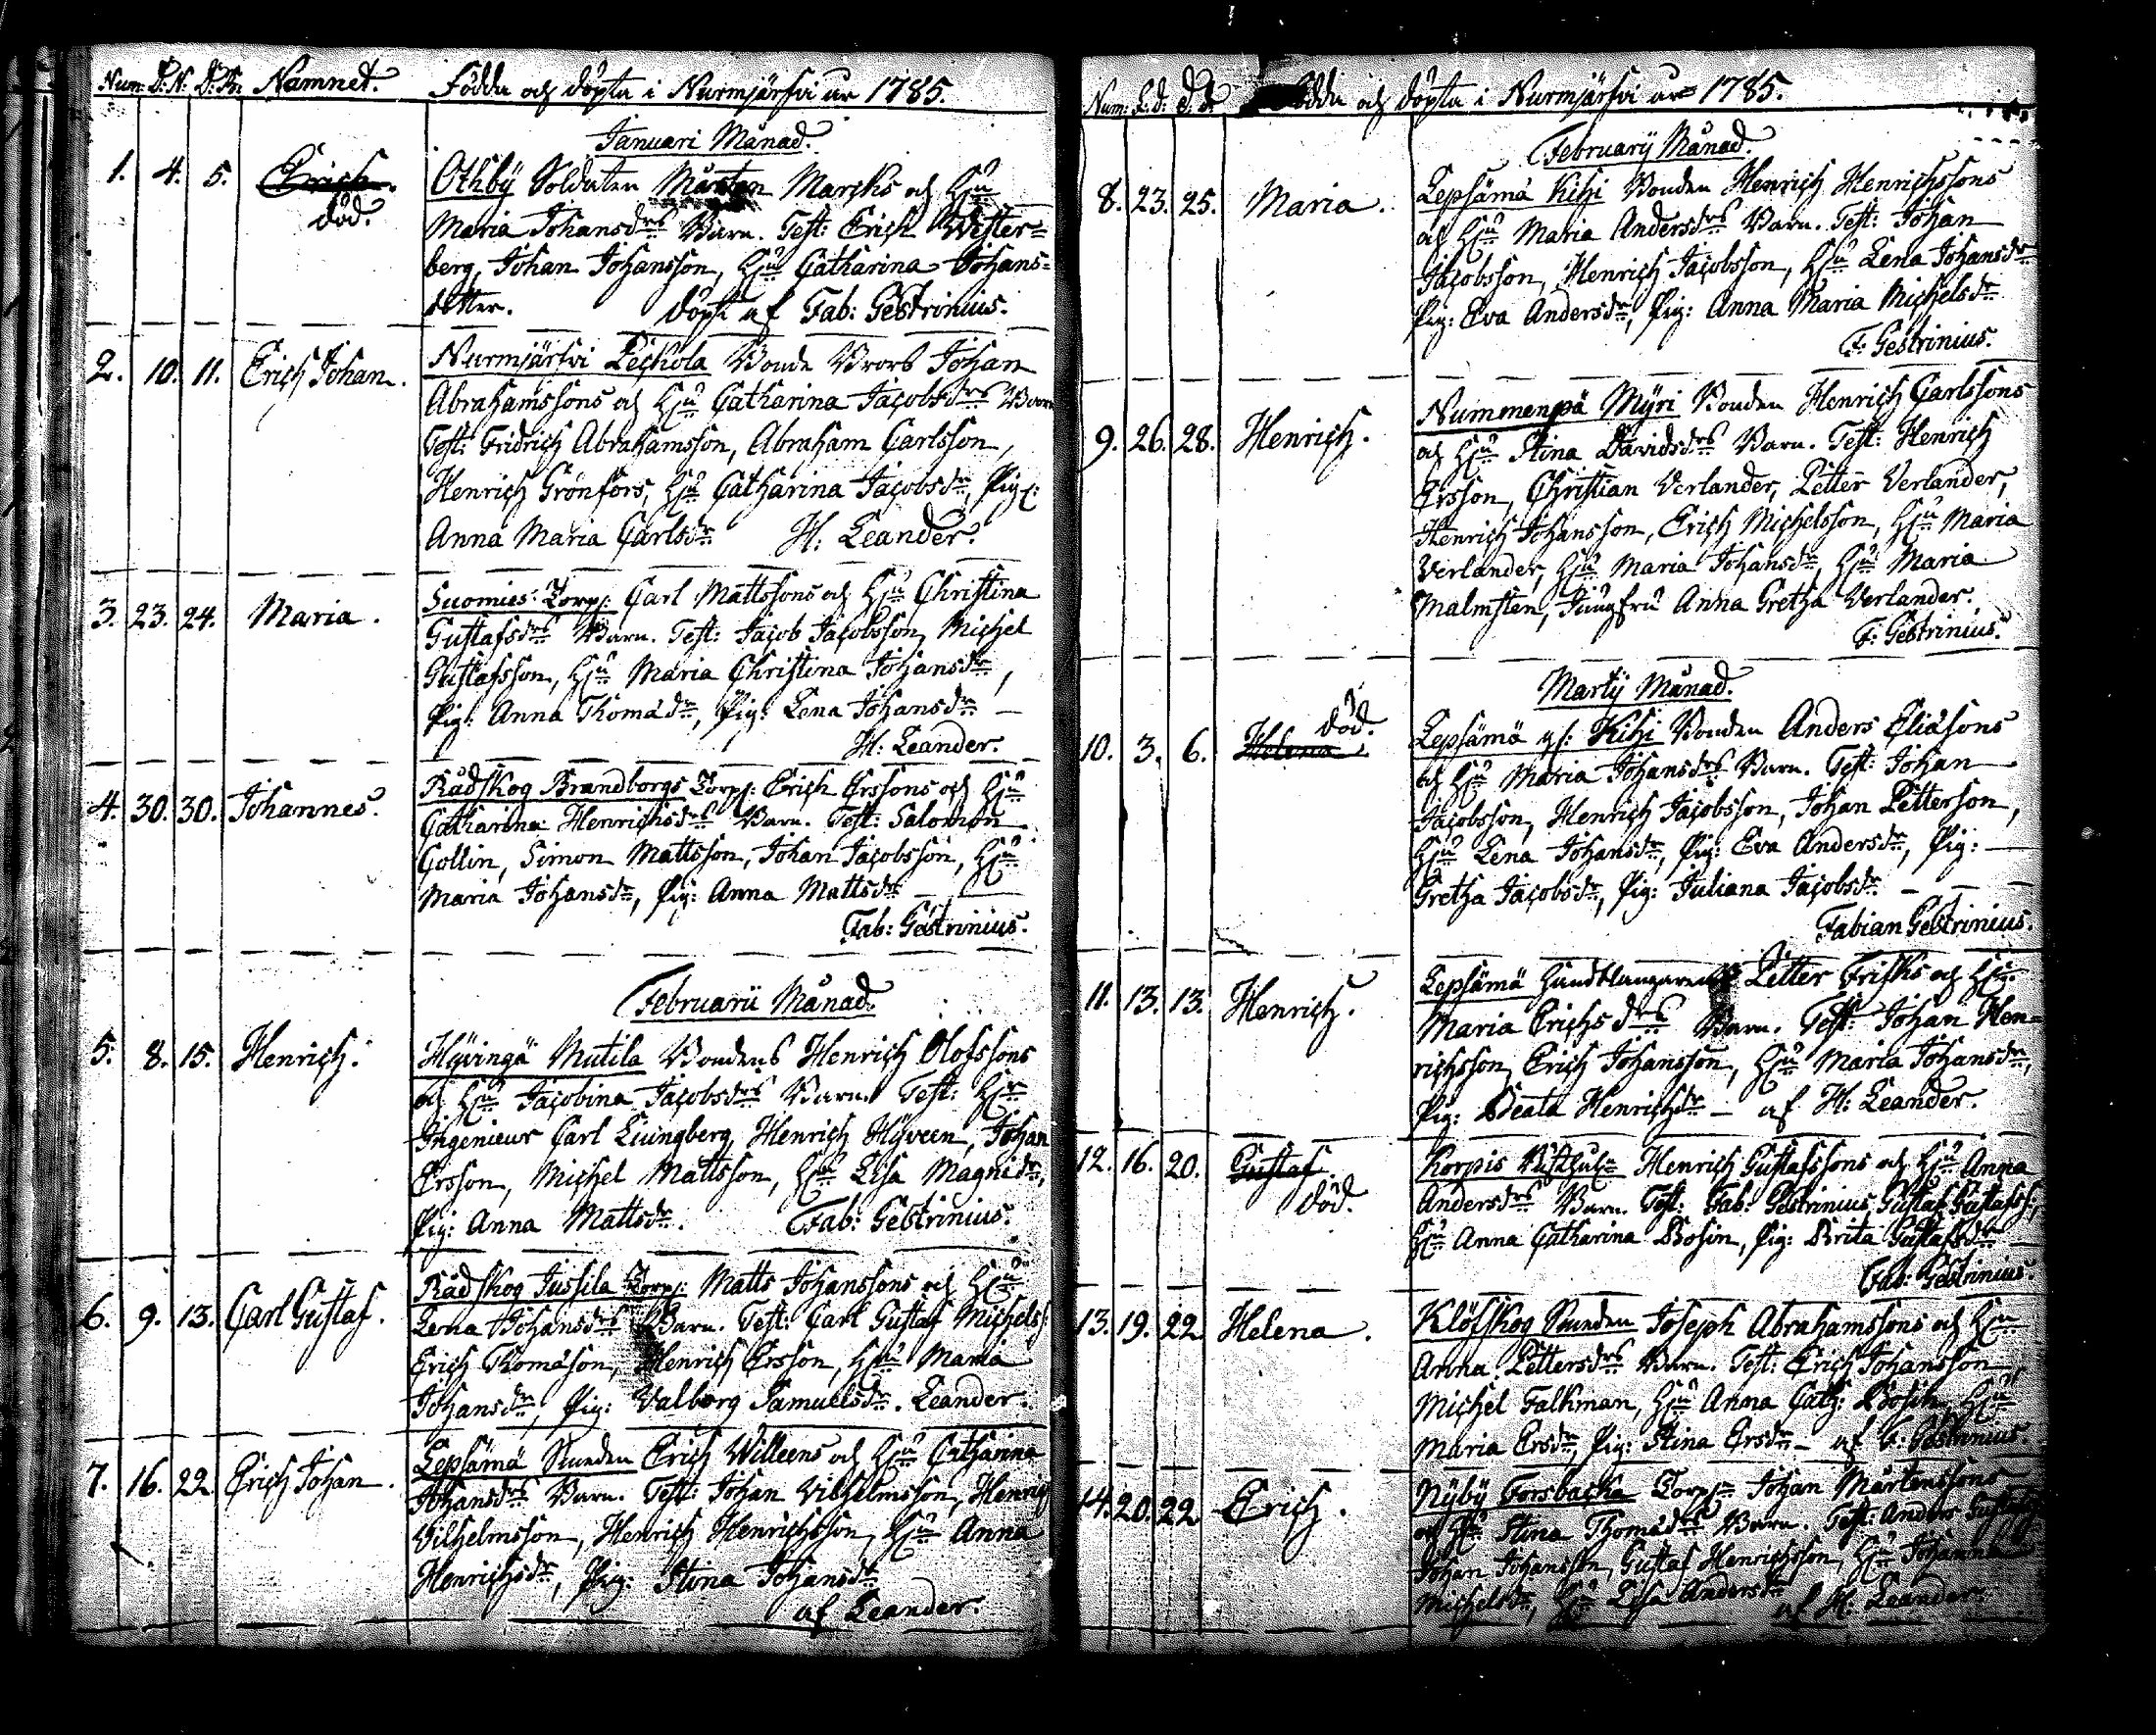 Num: D: N: D: Dr: Namnet. Födda och döpta i Nurmijärfvi år 1785.
Januari Månad.
1. 4. 5. Erich. död.
Othbÿ Soldaten Mårten Marcks och Hju
Maria Johansdrs Barn. Test: Erich Wester=
berg, Johan Johansson, Hju Catharina Johans=
dotter. döpt af Fab: Gestrinius.
2. 10. 11. Erich Johan.
Nurmjärfvi Pechola Bonde Brors Johan
Abrahamssons och Hju Catharina Jacobsdrs Barn
Test: Fridrich Abrahamsson, Abraham Carlsson,
Henrich Grönfors, Hju Catharina Jacobsdr, Pig:
Anna Maria Carlsdr H: Leander.
3. 23. 24. Maria.
Suomies Torp: Carl Mattssons och Hju Christina
Gustafsdrs Barn. Test: Jacob Jacobsson, Michel
Gustafsson, Hju Maria Christina Johansdr,
Pig: Anna Thomædr, Pig: Lena Johansdr —
H: Leander.
4. 30. 30. Johannes.
Rådskog Brandborgs Torp: Erich Erssons och Hju
Catharina Henrichsdrs Barn. Test: Salomon
Gollin, Simon Mattsson, Johan Jacobsson, Hju
Maria Johansdr, Pig: Anna Mattsdr —
Fab: Gestrinius.
Februarii Månad.
5. 8. 15. Henrich.
Hÿvingä Mutila Bondens Henrich Olofssons
och Hju Jacobina Jacobsdrs Barn. Test: Hr
Ingenieur Carl Liungberg, Henrich Hÿveen, Johan
Ersson, Michel Mattsson, Hju Lisa Magnidr,
Pig: Anna Mattsdr. Fab: Gestrinius.
6. 9. 13. Carl Gustaf.
Rådskog Jussila Torp: Matts Johanssons och Hju
Lena Johansdrs Barn. Test: Carl Gustaf Michels:
Erich Thomæson, Henrich Ersson, Hju Maria
Johansdr, Pig: Valborg Samuelsdr. Leander.
7. 16. 22. Erich Johan.
Lepsämä Erich Willeens och Hju Catharina
Johansdrs Barn. Test: Johan Vilhelmsson, Henrich
Vilhelmsson, Henrich Henrichsson, Hju Anna
Henrichsdr, Pig: Stina Johansdr
af Leander.
Num: F: d: D: d: Födda och döpta i Nurmjärfvi år 1785.
Februarÿ Månad.
8. 23. 25. Maria.
Lepsämä Kihi Bonden Henrich Henrichssons
och Hju Maria Andersdrs Barn. Test: Johan
Jacobsson, Henrich Jacobsson, Hju Lena Johansdr
Pig: Eva Andersdr, Pig: Anna Maria Michelsdr
F: Gestrinius.
9. 26. 28. Henrich.
Nummenpä Mÿri Bonden Henrich Carlssons
och Hju Stina Davidsdrs Barn. Test: Henrich
Ersson, Christian Verlander, Petter Verlander,
Henrich Johansson, Erich Michelsson, Hju Maria
Verlander, Hju Maria Johansdr, Hju Maria
Malmsten, Jungfru Anna Gretha Verlander.
F: Gestrinius.
Martÿ Månad.
10. 3. 6. Helena. död.
Lepsämä Kihi Bonden Anders Eliæsons
och Hju Maria Johansdrs Barn. Test: Johan
Jacobsson, Henrich Jacobsson, Johan Petterson,
Hju Lena Johansdr, Pig: Eva Andersdr, Pig: —
Gretha Jacobsdr, Pig: Juliana Jacobsdr —
Fabian Gestrinius.
11. 13. 13. Henrich.
Lepsämä Handtlangaren Petter Frisks och Hju
Maria Erichsdrs Barn. Test: Johan Hen=
richsson, Erich Johansson, Hju Maria Johansdr,
Pig: Beata Henrichsdr — af H: Leander.
12. 16. 20. Gustaf. död.
Korpis Henrich Gustafssons och Hju Anna
Andersdrs Barn. Test: Fab: Gestrinius, Gustaf Gustafss:,
Hju Anna Catharina Bosin, Pig: Brita Gustafsdr
Fab: Gestrinius.
13. 19. 22 Helena.
Klöfskog Joseph Abrahamssons och Hju
Anna Pettersdrs Barn. Test: Erich Johansson
Michel Falkman, Hju Anna Cath: Bosin, Hju
Maria Ersdr, Pig: Stina Ersdr — af F: Gestrinius.
14. 20. 22 Erich.
Nÿbÿ Forsbacka Torp: Johan Mårtenssons
och Hju Stina Thomædrs Barn. Test: Anders
Johan Johansson, Gustaf Henrichsson, Hju Johanna
Michelsdr, Hju Lisa Andersdr af H: Leander.